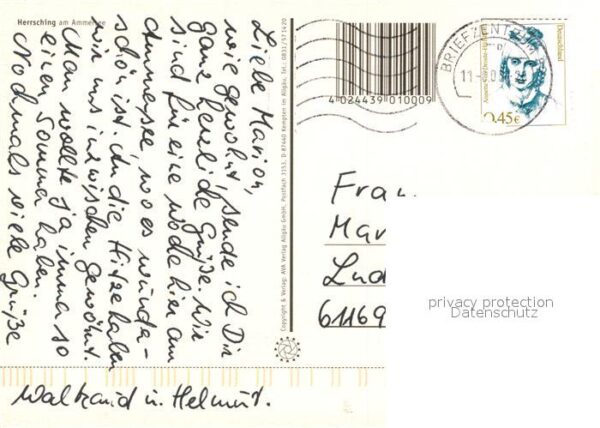 Herrsching am Ammersee
Liebe Marion,
wie gewohnt, sende ich Dir
ganz herzliche Grüße. Wir
sind für eine Woche hier am
Ammersee, wo es wunder-
schön ist. An die Hitze haben
wir uns inzwischen gewöhnt.
Man wollte ja immer so
einen Sommer haben.
Nochmals viele Grüße
Waltraud u. Helmut.
Copyright & Verlag: AVA Verlag Allgäu GmbH, Postfach 3153, D 87440 Kempten im Allgäu, Tel.: 0831/571420
4 024439 010009
BRIEFZENTRUM
11
Deutschland
Annette von Droste-Hülshoff
0,45€
Frau
Mar
Lud
61169
privacy protection
Datenschutz